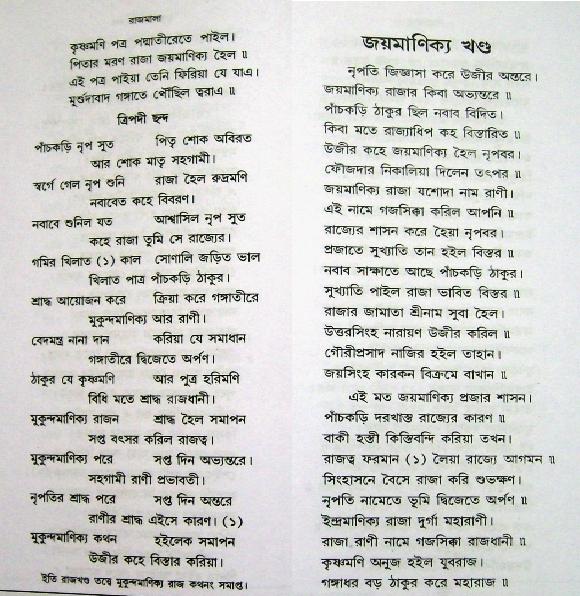 রাজমালা
কৃষ্ণমণি পত্র পদ্মাতীরেতে পাইল।
পিতার মরণ রাজা জয়মাণিক্য হৈল॥
এই পত্র পাইয়া তেনি ফিরিয়া যে যাএ।
মুর্শুদাবাদ গঙ্গাতে পৌঁছিল ত্বরাএ॥
ত্রিপদী ছন্দ
পাঁচকড়ি নৃপ সুত পিতৃ শোক অবিরত
আর শোক মাতৃ সহগামী।
স্বর্গে গেল নৃপ শুনি রাজা হৈল রুদ্রমণি
নবাবেত কহে বিবরণ।
নবাবে শুনিল যত আশ্বাসিল নৃপ সুত
কহে রাজা তুমি সে রাজ্যের।
গমির খিলাত (১) কাল সোণালি জড়িত ভাল
খিলাত পাত্র পাঁচকড়ি ঠাকুর।
শ্রাদ্ধ আয়োজন করে ক্রিয়া করে গঙ্গাতীরে
মুকুন্দমাণিক্য আর রাণী।
বেদমন্ত্র নানা দান করিয়া যে সমাধান
গঙ্গাতীরে দ্বিজেতে অর্পণ।
ঠাকুর যে কৃষ্ণমণি আর পুত্র হরিমণি
বিধি মতে শ্রাদ্ধ রাজধানী।
মুকুন্দমাণিক্য রাজন শ্রাদ্ধ হৈল সমাপন
সপ্ত বৎসর করিল রাজত্ব।
মুকুন্দমাণিক্য পরে সপ্ত দিন অভ্যন্তরে।
সহগামী রাণী প্রভাবতী।
নৃপতির শ্রাদ্ধ পরে সপ্ত দিন অন্তরে
রাণীর শ্রাদ্ধ এইসে কারণ। (১)
মুকুন্দমাণিক্য কথন হইলেক সমাপন
উজীর কহে বিস্তার করিয়া।
ইতি রাজখণ্ড তন্বে মুকুন্দমাণিক্য রাজ কথনং সমাপ্ত।
জয়মাণিক্য খণ্ড
নৃপতি জিজ্ঞাসা করে উজীর অন্তরে।
জয়মাণিক্য রাজার কিবা অভ্যন্তরে॥
পাঁচকড়ি ঠাকুর ছিল নবাব বিদিত।
কিবা মতে রাজ্যাধিপ কহ বিস্তারিত॥
উজীর কহে জয়মাণিক্য হৈল নৃপবর।
ফৌজদার নিকালিয়া দিলেন তৎপর॥
জয়মাণিক্য রাজা যশোদা নাম রাণী।
এই নামে গজসিক্কা করিল আপনি॥
রাজ্যের শাসন করে হৈয়া নৃপবর।
প্রজাতে সুখ্যাতি তান হইল বিস্তর॥
নবাব সাক্ষাতে আছে পাঁচকড়ি ঠাকুর।
সুখ্যাতি পাইল রাজা ভাবিত বিস্তর॥
রাজার জামাতা শ্রীনাম সুবা হৈল।
উত্তরসিংহ নারায়ণ উজীর করিল॥
গৌরীপ্রসাদ নাজির হইল তাহান।
জয়সিংহ কারকন বিক্রমে বাখান॥
এই মত জয়মাণিক্য প্রজার শাসন।
পাঁচকড়ি দরখাস্ত রাজ্যের কারণ॥
বাকী হস্তী কিস্তিবন্দি করিয়া তখন।
রাজত্ব ফরমান (১) লৈয়া রাজ্যে আগমন॥
সিংহাসনে বৈসে রাজা করি শুভক্ষণ।
নৃপতি নামেতে ভূমি দ্বিজেতে অর্পণ॥
ইন্দ্রমাণিক্য রাজা দুর্গা মহারাণী।
রাজা রাণী নামে গজসিক্কা রাজধানী॥
কৃষ্ণমণি অনুজ হইল যুবরাজ।
গঙ্গাধর বড় ঠাকুর করে মহারাজ॥